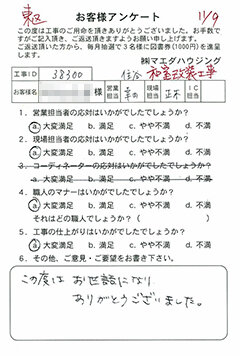 東区
お客様アンケート
11/9
この度は工事のご用命を頂きありがとうございました。お手数
ですがご記入頂き、ご返送頂きますようお願い申し上げます。
ご返送頂いた方から、毎月抽選で3名様に図書券(1000円)を進呈
します。
㈱マエダハウジング
工事ID 38300 和室改装工事
お客様名 様 営業担当 現場担当 正木 IC担当
1. 営業担当者の応対はいかがでしたでしょうか?
a. 大変満足 b. 満足 c. やや不満 d. 不満
2. 現場担当者の応対はいかがでしたでしょうか?
a. 大変満足 b. 満足 c. やや不満 d. 不満
3. コーディネーターの応対はいかがでしたでしょうか?
a. 大変満足 b. 満足 c. やや不満 d. 不満
4. 職人のマナーはいかがでしたでしょうか?
a. 大変満足 b. 満足 c. やや不満 d. 不満
それはどの職人でしょうか?( )
5. 工事の仕上がりはいかがでしたでしょうか?
a. 大変満足 b. 満足 c. やや不満 d. 不満
6. その他、ご意見・ご要望をお書き下さい。
この度は お世話になり
ありがとうございました。